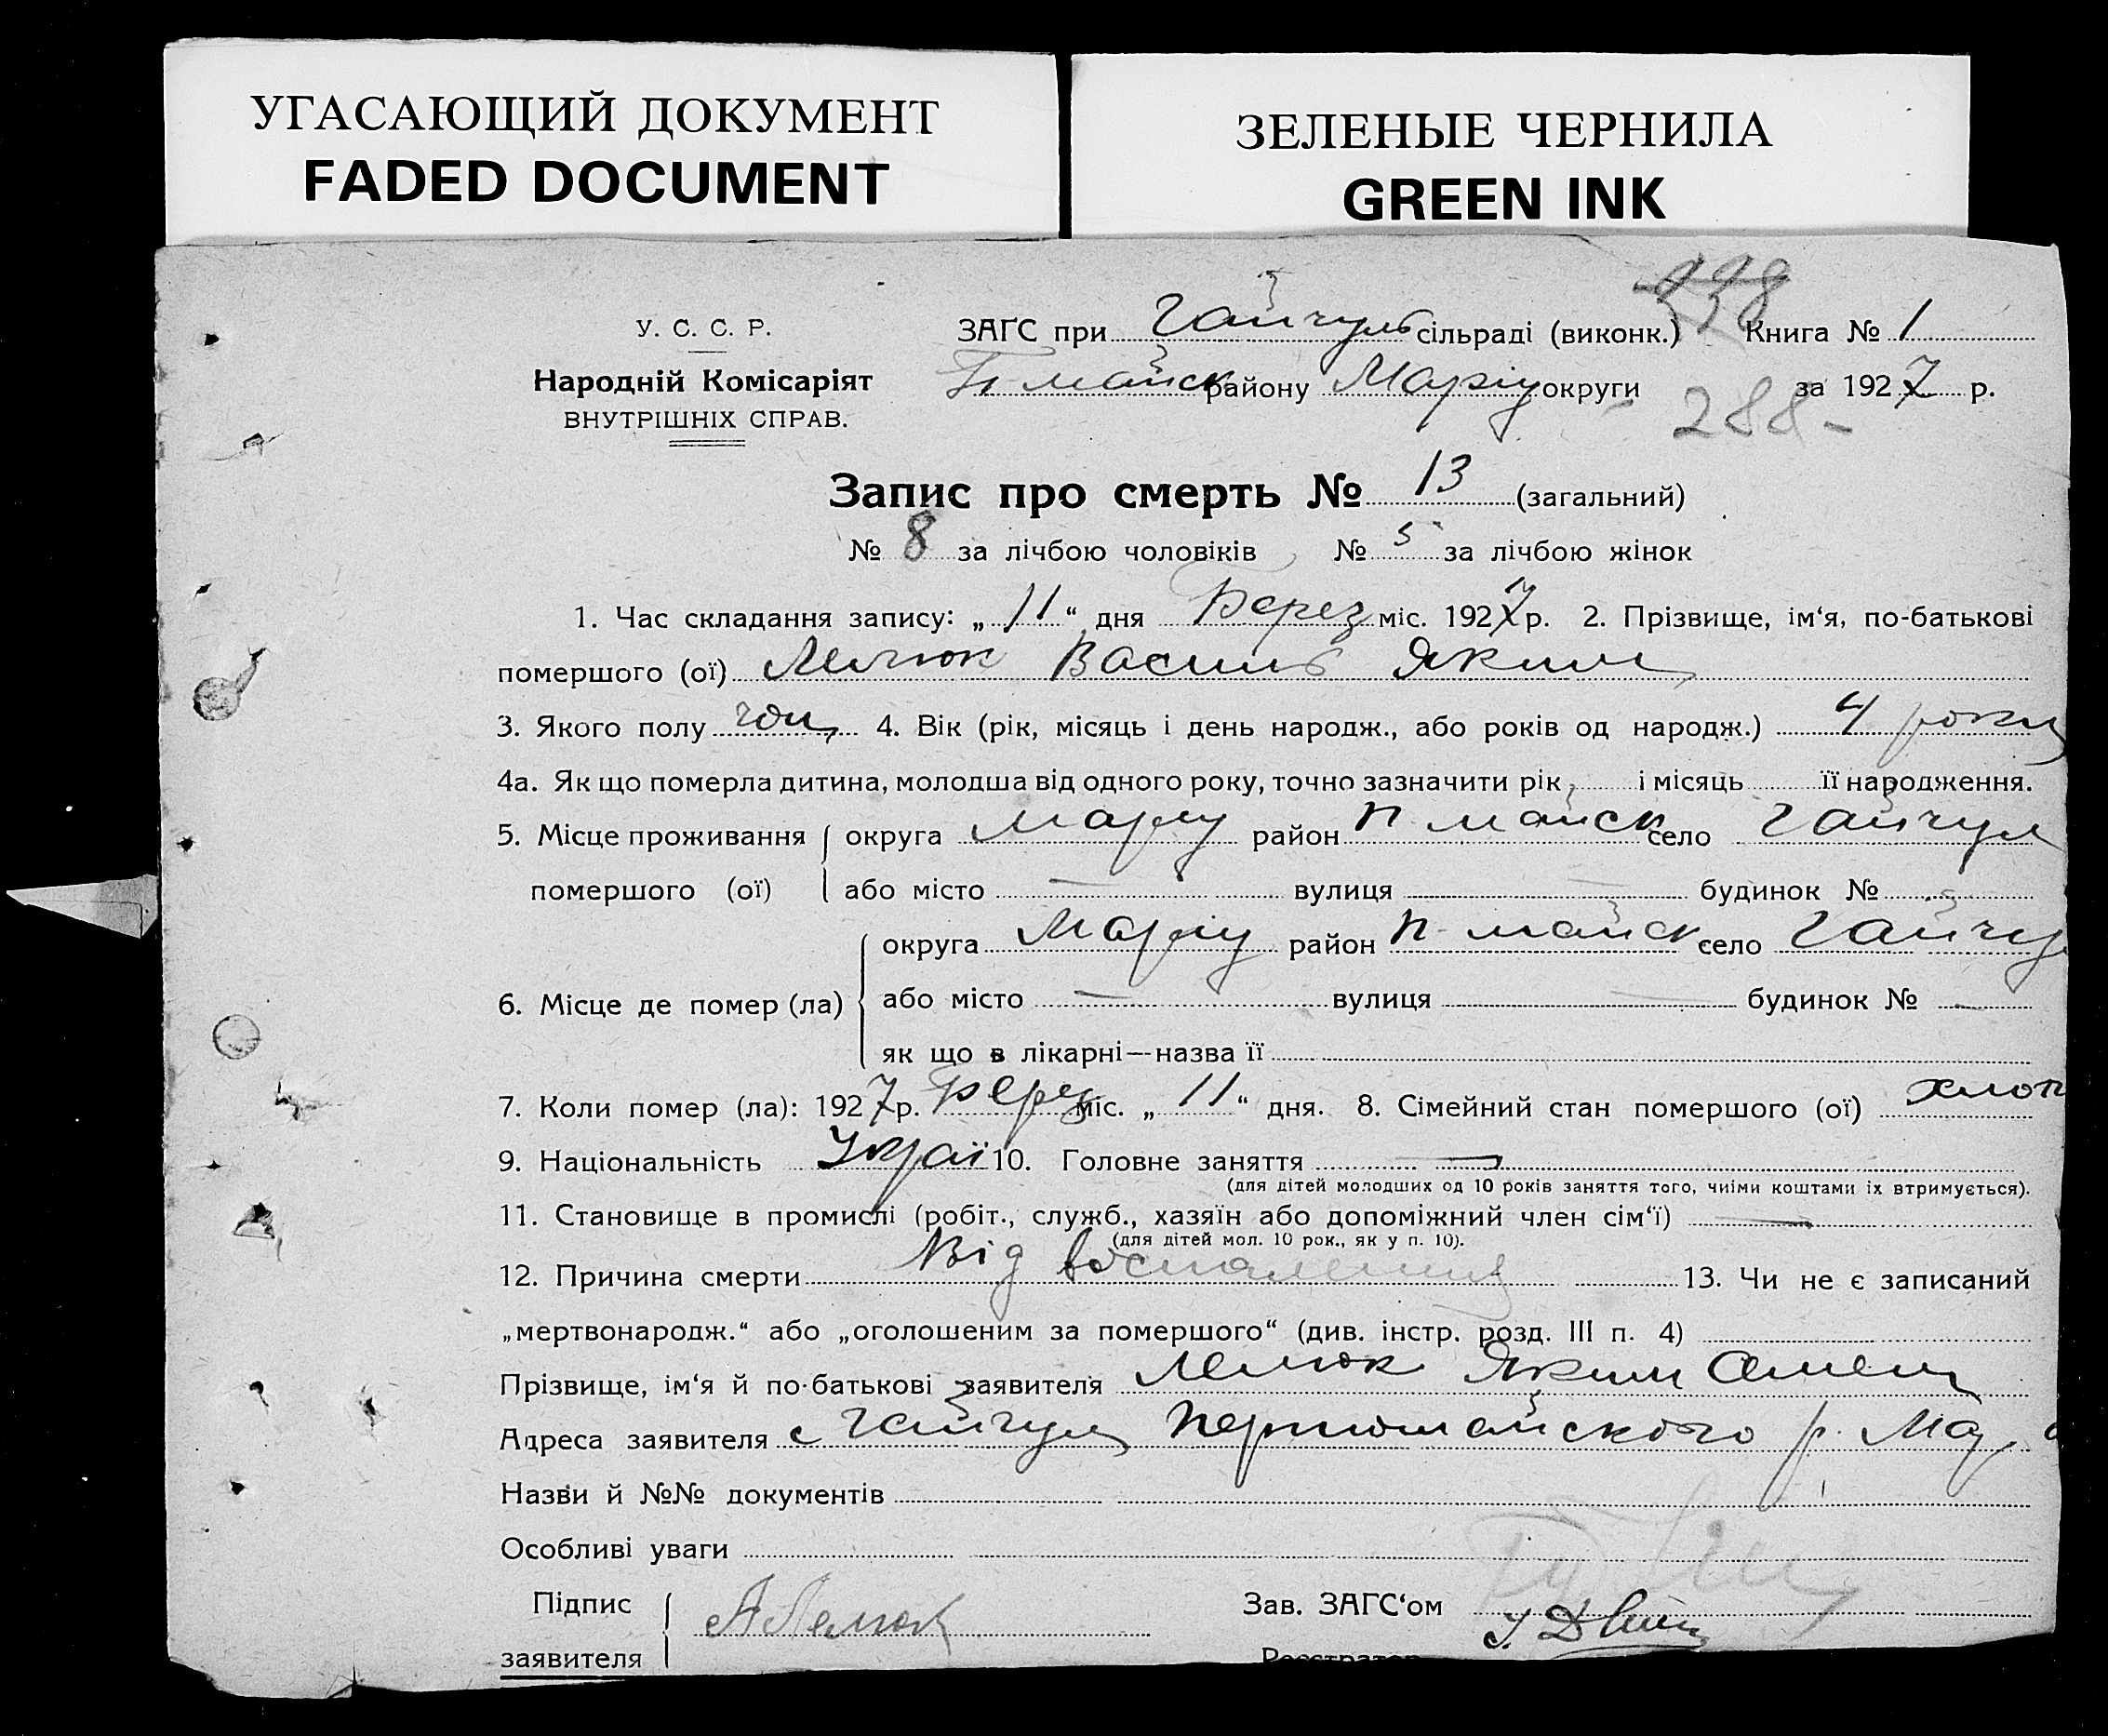 УГАСАЮЩИЙ ДОКУМЕНТ
FADED DOCUMENT
ЗЕЛЕНЫЕ ЧЕРНИЛА
GREEN INK
У. С. С. Р.
Народній Комісаріят
ВНУТРІШНІХ СПРАВ.
338
ЗАГС при Гайчуль сільраді (виконк.) Книга № 1
П майск району Маріу округи за 1927 р.
288-
Запис про смерть № 13 (загальний)
№ 8 за лічбою чоловіків № 5 за лічбою жінок
1. Час складання запису: „ 11 “ дня Берез міс. 1927 р. 2. Прізвище, ім‘я, по-батькові
помершого (ої) Василь Яким
3. Якого полу чол 4. Вік (рік, місяць і день народж., або років од народж.) 4 роки
4а. Як що померла дитина, молодша від одного року, точно зазначити рік і місяць її народження.
5. Місце проживання округа Маріу район П майск село Гайчул
помершого (ої) або місто — вулиця — будинок №
округа Маріу район П майск село Гайчу
6. Місце де помер (ла) або місто — вулиця — будинок № —
як що в лікарні—назва її
7. Коли помер (ла): 1927 р. Берез міс. „ 11 “ дня. 8. Сімейний стан помершого (ої) хлоп
9. Національність Украї 10. Головне заняття —
(для дітей молодших од 10 років заняття того, чиіми коштами іх втримується).
11. Становище в промислі (робіт., служб., хазяїн або допоміжний член сім‘ї) —
(для дітей мол. 10 рок., як у п. 10).
12. Причина смерти Від воспаления 13. Чи не є записаний
„мертвонародж.“ або „оголошеним за помершого“ (див. інстр. розд. III п. 4)
Прізвище, ім‘я й по-батькові заявителя Яким
Адреса заявителя с Гайчул Першомайского р. Ма
Назви й №№ документів
Особливі уваги
Підпис
заявителя
Зав. ЗАГС‘ом
Реєстратор